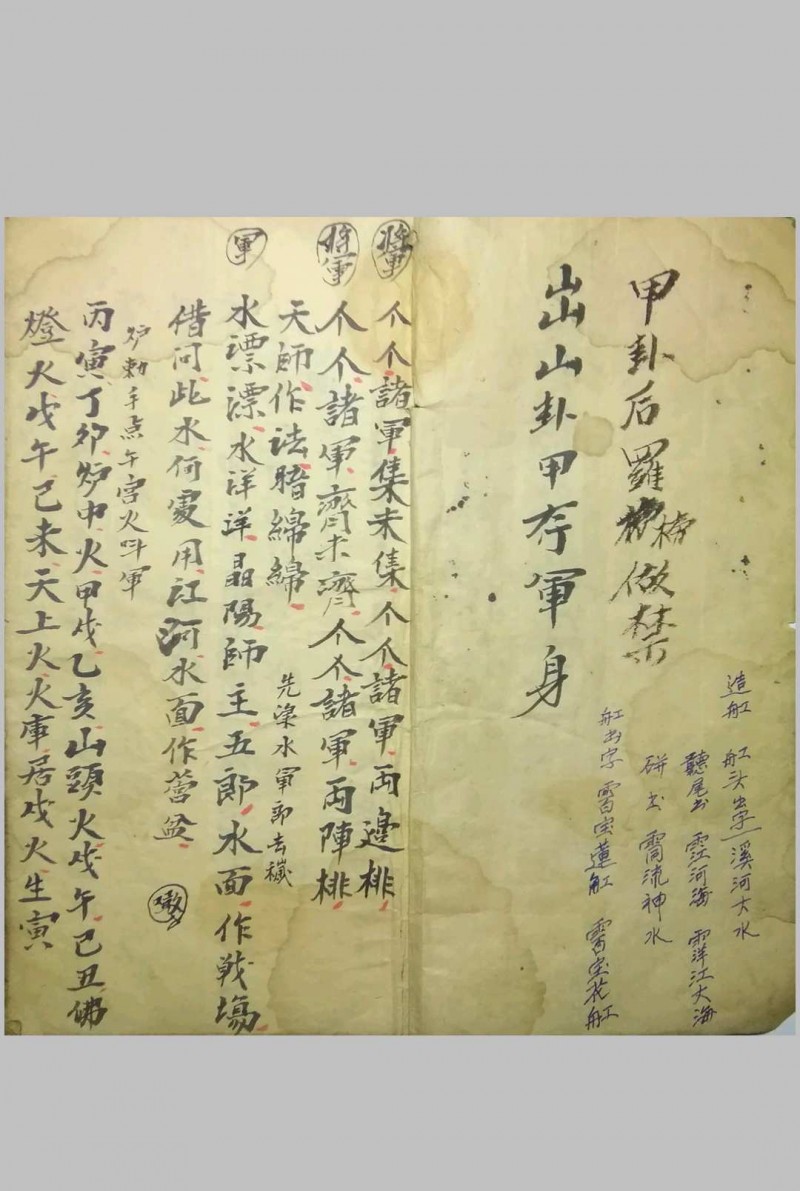 造船 船头出字 溪河大水
聽尾出 霐河海 霻江大海
硑出 霌流神水
船出字 霄宝蓮船 霄宝花船
甲卦后羅 榜做禁
出山卦甲存軍身
將軍 个个諸軍集未集个个諸軍両邊排
將軍 个个諸軍齊未齊个个諸軍両陣排
天師作法暗綿綿 先染水軍即去穢
軍 水漂漂水洋洋晶陽師主五郎水面作戰場
借问此水何處用江河水面作營盆
炉勅手点午宫火呌軍
丙寅丁卯炉中火甲戌乙亥山頭火戌午己丑佛
燈火戌午己未天上火火庫居戌火生寅